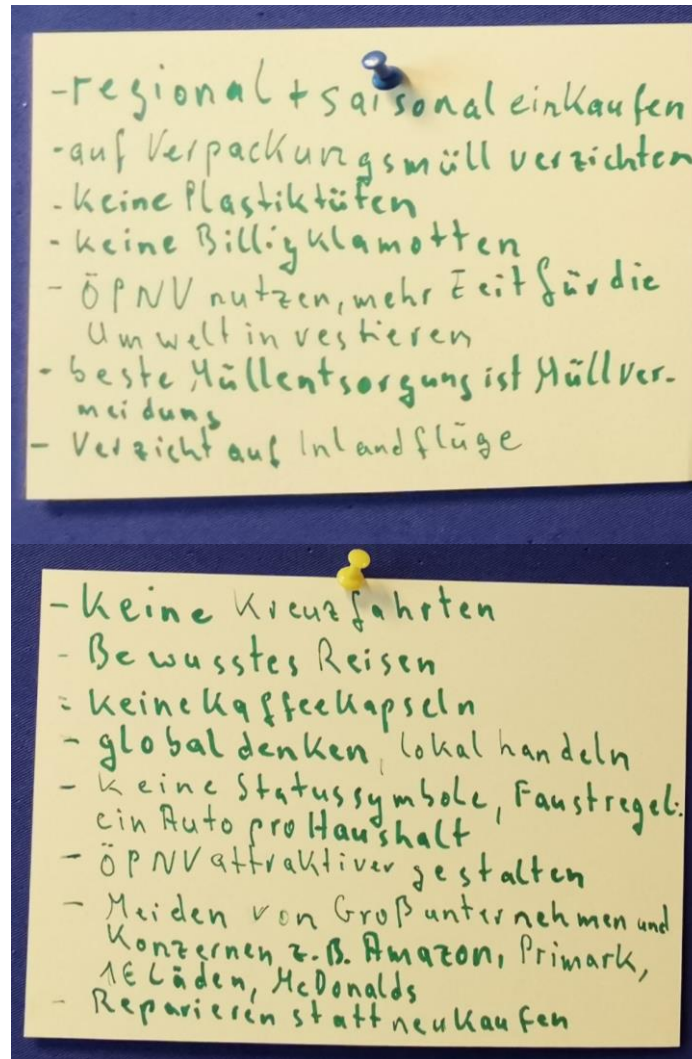 - regional + saisonal einkaufen
- auf Verpackungsmüll verzichten
- keine Plastiktüten
- keine Billigklamotten
- ÖPNV nutzen, mehr Zeit für die
Umwelt investieren
- beste Müllentsorgung ist Müllver-
meidung
- Verzicht auf Inlandflüge
- keine Kreuzfahrten
- Bewusstes Reisen
- keine Kaffeekapseln
- global denken, lokal handeln
- keine Statussymbole, Faustregel:
ein Auto pro Haushalt
- ÖPNV attraktiver gestalten
- Meiden von Großunternehmen und
Konzernen z.B. Amazon, Primark,
1€ Läden, McDonalds
- Reparieren statt neu kaufen